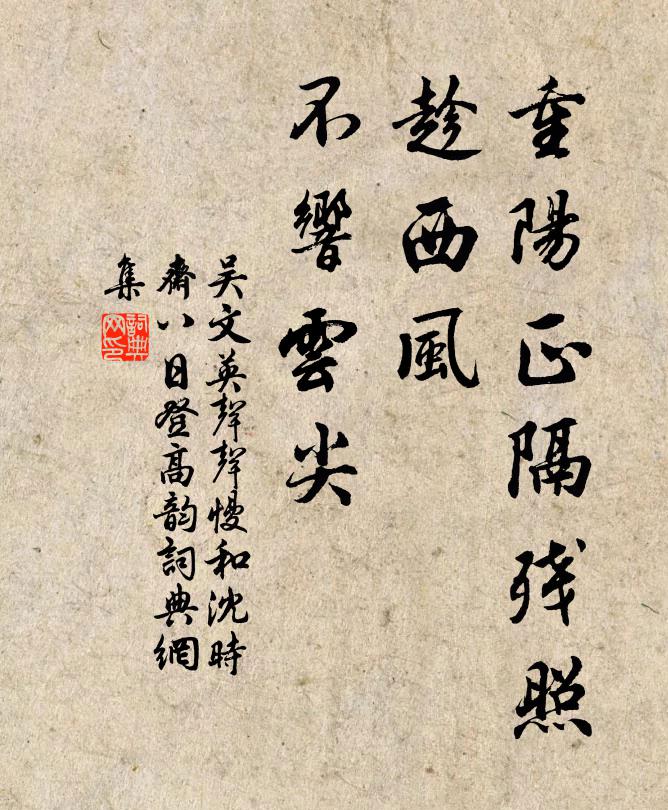 重陽正隔殘照
趁西風
不響雲尖
吳文英聲聲慢和沈時
齋八日登高韵詞典網
集
詞典
网印